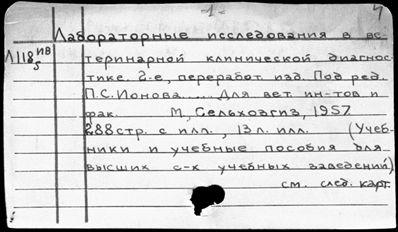 -1-
4
Лабораторные исследования в ве-
Л118 ив
5
теринарной клинической диагнос-
тике. 2-е, переработ. изд. Под ред.
П.С. Ионова.... Для вет. ин-тов и
фак. М, Сельхозгиз, 1957
288 стр. с илл., 13 л. илл. (Учеб-
ники и учебные пособия для
высших с-х учебных заведений)
см. след. карт.